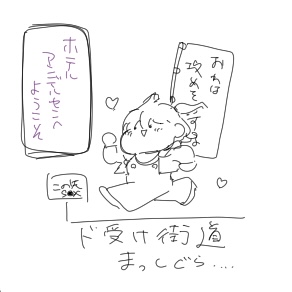 ホテル
アニデルセンへ
ようこそ
おれは
攻めを
この先
SEX
ド受け街道
まっしぐら....